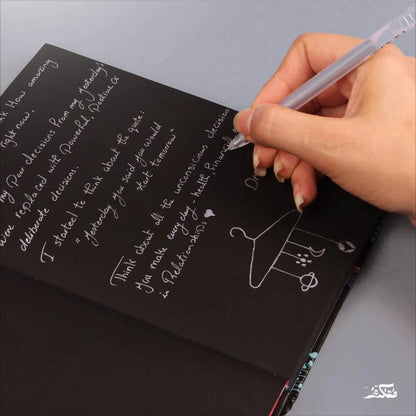 k How amazing
right now,
my Poor decisions From my yesterday!
were replaced with Powerful, Positive &
deliberate decisions.
I started to think about the quote:
"Yesterday you said you would
start tomorrow"
Think about all the unconscious decision
you make every day - health, Financial
in Relationship!
مفكرة